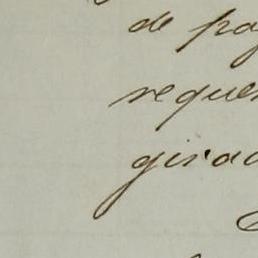 de pag
reque
girad